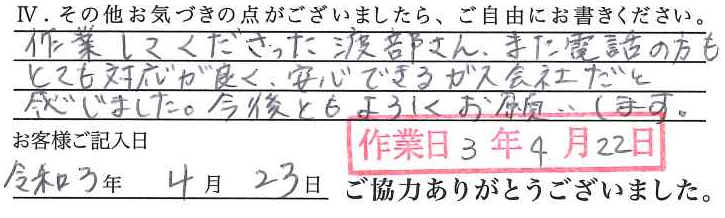 Ⅳ．その他お気づきの点がございましたら、ご自由にお書きください。
作業してくださった渡部さん、また電話の方も
とても対応が良く、安心できるガス会社だと
感じました。今後ともよろしくお願いします。
お客様ご記入日
作業日 3 年 4 月 22 日
令和3年 4月 23日 ご協力ありがとうございました。